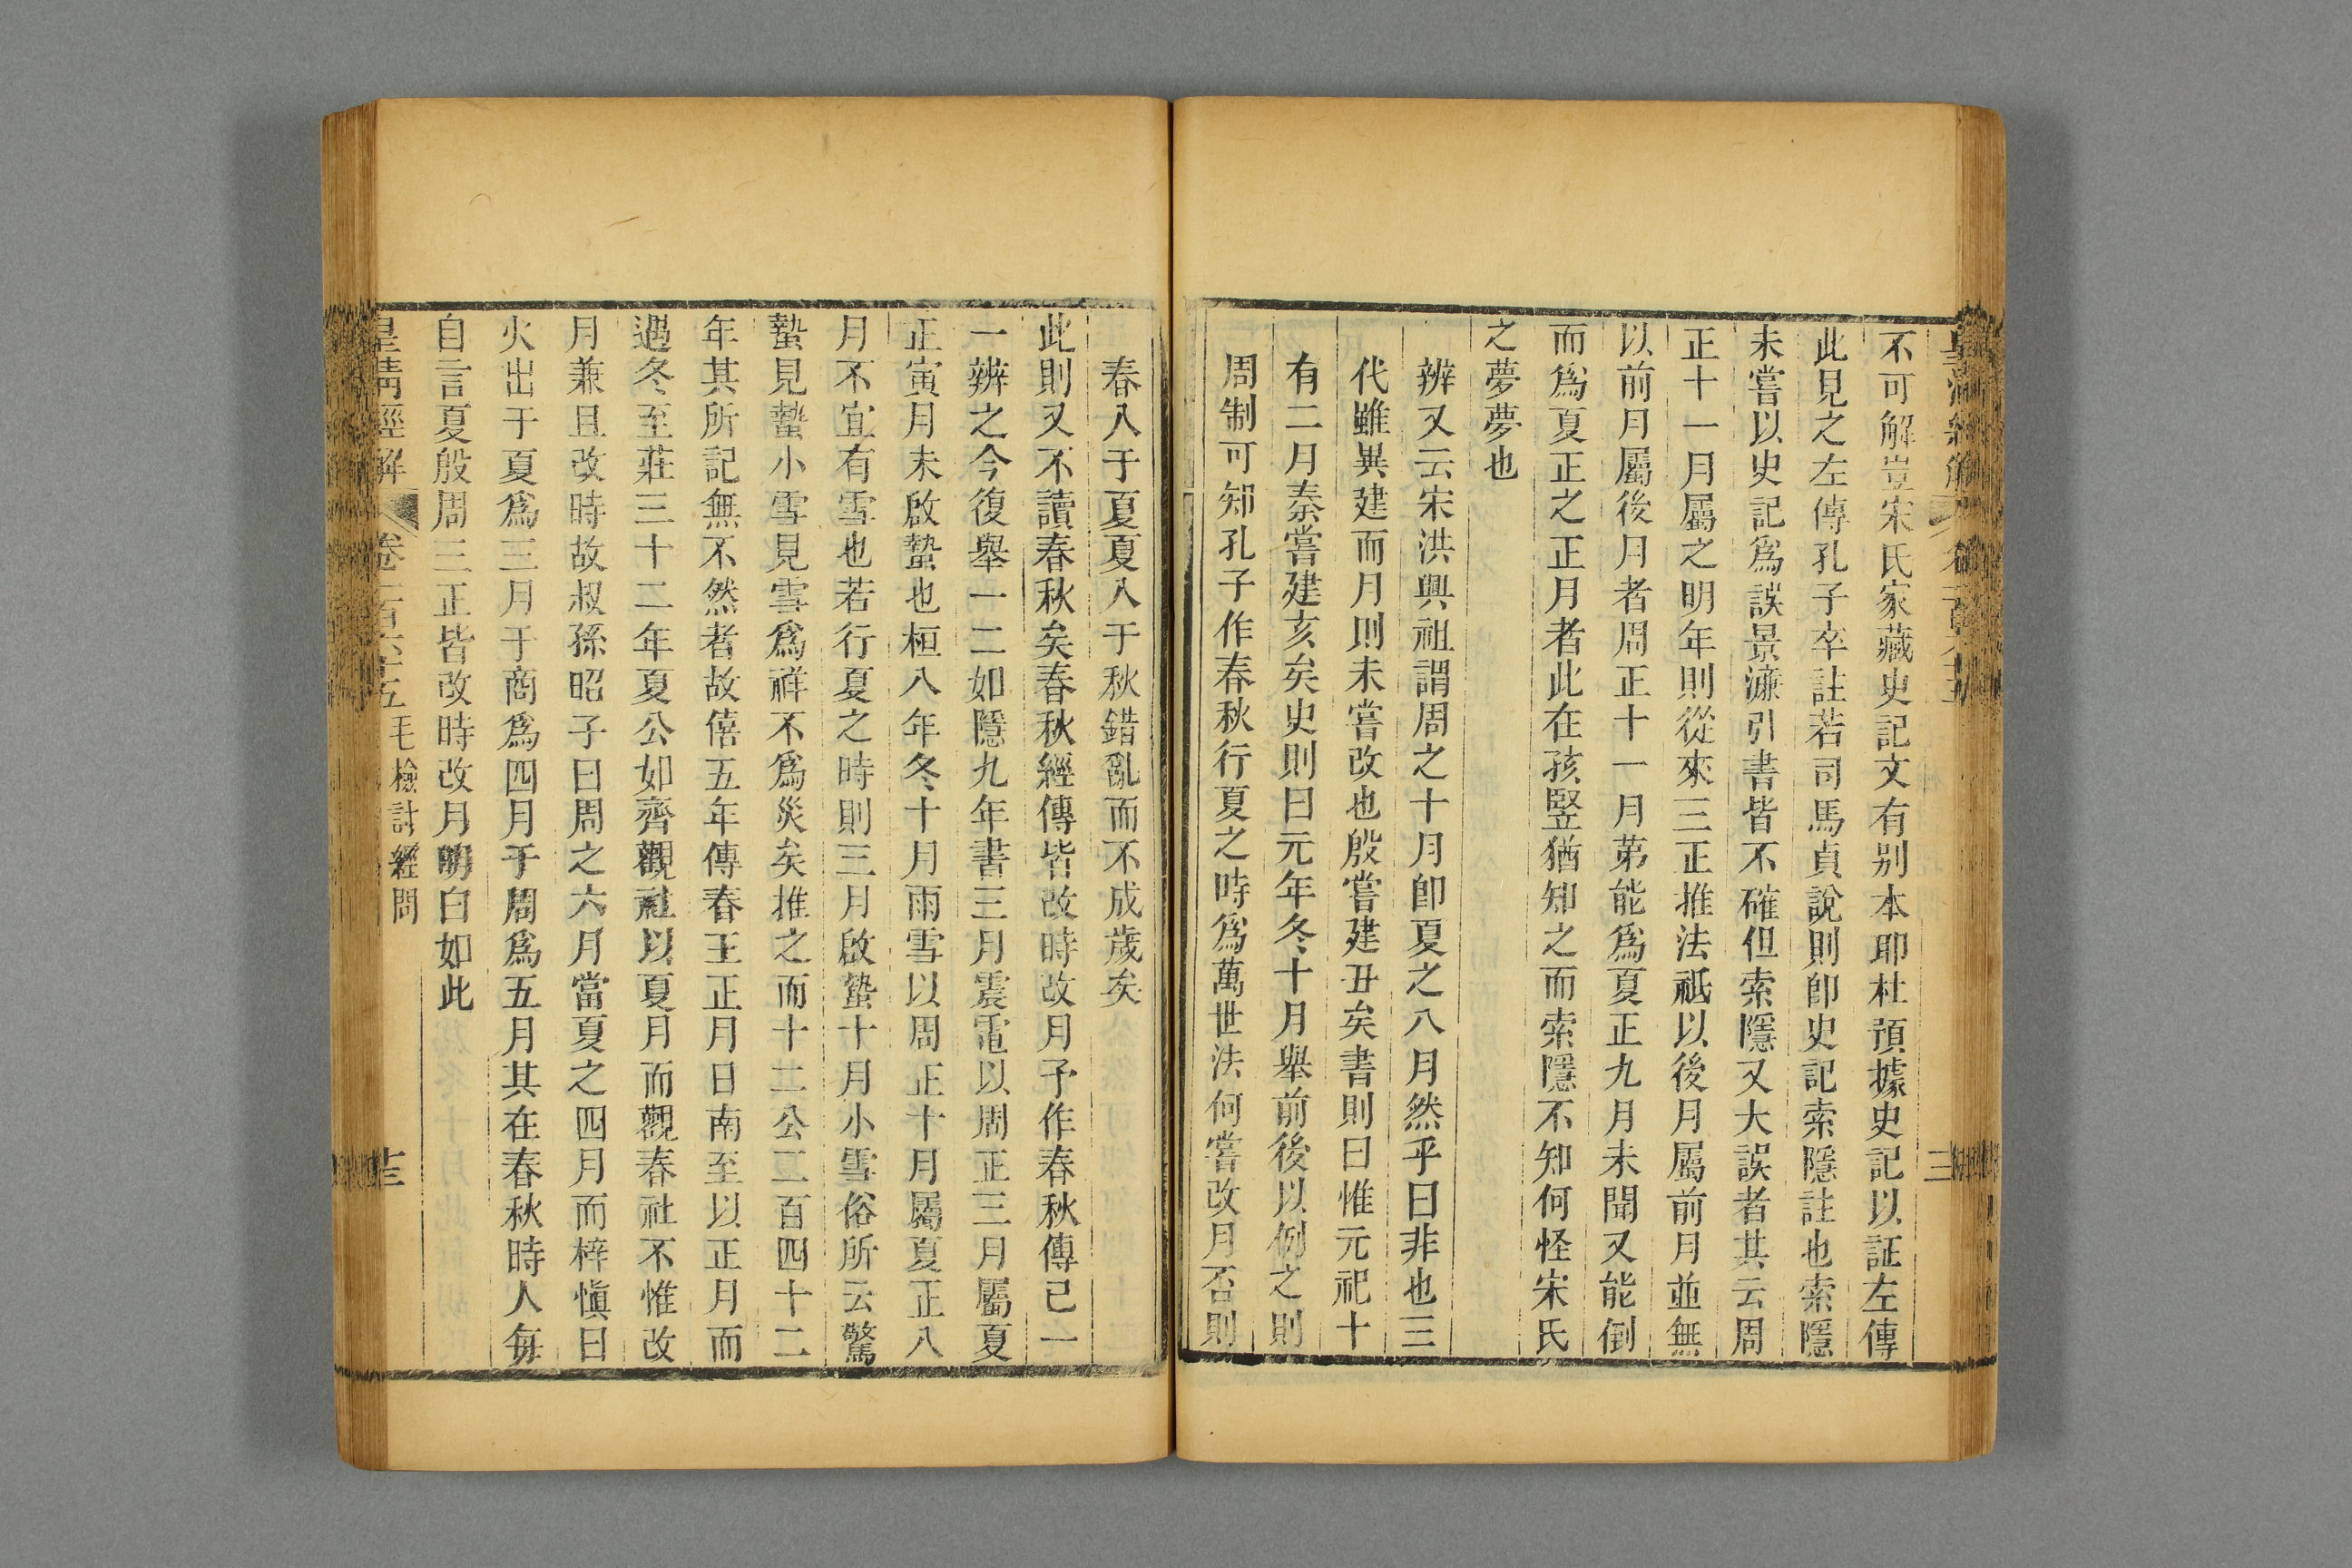 不可解豈宋氏家藏史記文有别本耶杜預據史記以証左傳
此見之左傳孔子卒註若司馬貞說則卽史記索隱註也索隱
未嘗以史記爲誤景濂引書皆不確但索隱又大誤者其云周
正十一月屬之明年則從來三正推法祗以後月屬前月並無
以前月屬後月者周正十一月第能爲夏正九月未聞又能倒
而爲夏正之正月者此在孩竪猶知之而索隱不知何怪宋氏
之夢夢也
辨又云宋洪興祖謂周之十月卽夏之八月然乎曰非也三
代雖異建而月則未嘗改也殷嘗建丑矣書則曰惟元祀十
有二月秦嘗建亥矣史則曰元年冬十月舉前後以例之則
周制可知孔子作春秋行夏之時爲萬世法何嘗改月否則
春入于夏夏入于秋錯亂而不成歲矣
此則又不讀春秋矣春秋經傳皆改時改月予作春秋傳已一
一辨之今復舉一二如隱九年書三月震電以周正三月屬夏
正寅月未啟蟄也桓八年冬十月雨雪以周正十月屬夏正八
月不宜有雪也若行夏之時則三月啟蟄十月小雪俗所云驚
蟄見蟄小雪見雪爲祥不爲災矣推之而十二公二百四十二
年其所記無不然者故僖五年傳春王正月日南至以正月而
遇冬至莊三十二年夏公如齊觀社以夏月而觀春社不惟改
月兼且改時故叔孫昭子曰周之六月當夏之四月而梓愼曰
火出于夏爲三月于商爲四月于周爲五月其在春秋時人每
自言夏殷周三正皆改時改月明白如此
皇清經解 卷一百六十五 毛檢討經問 十三